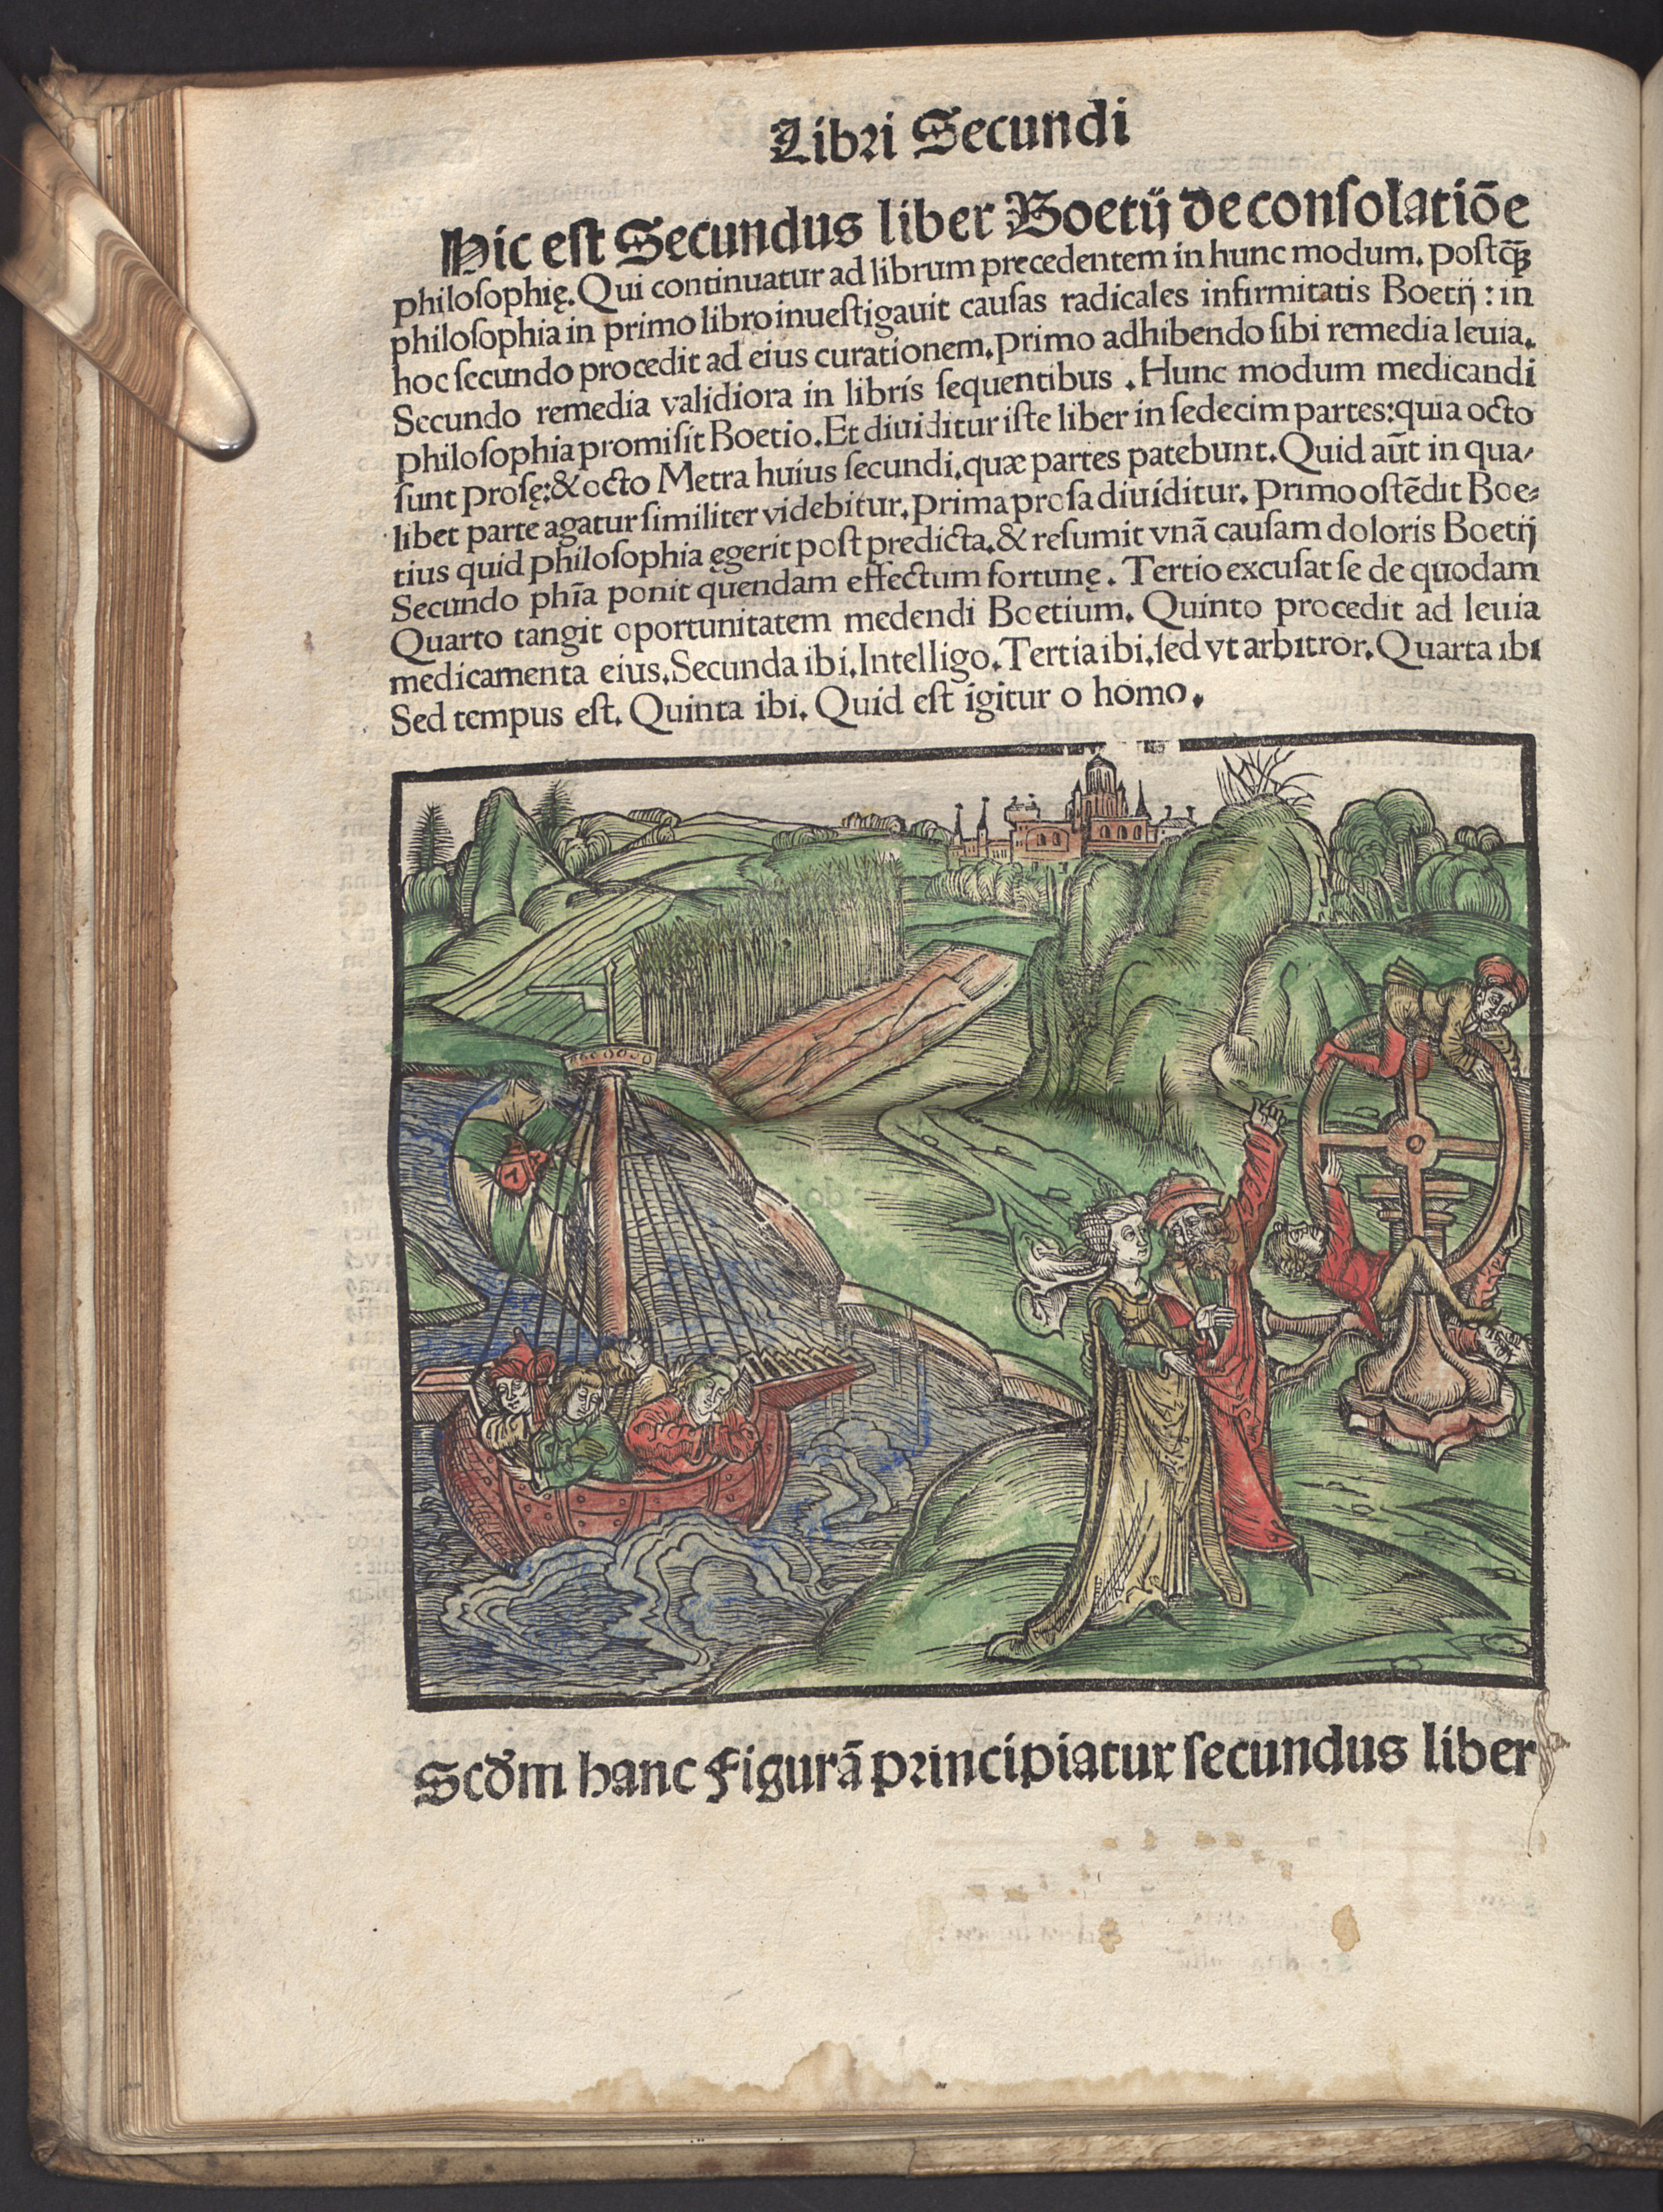 Libri Secundi
Hic est Secundus liber Boetij de consolatiōe
philosophię. Qui continuatur ad librum precedentem in hunc modum. postqꝫ
philosophia in primo libro inuestigauit causas radicales infirmitatis Boetij : in
hoc secundo procedit ad eius curationem. primo adhibendo sibi remedia leuia.
Secundo remedia validiora in libris sequentibus . Hunc modum medicandi
philosophia promisit Boetio. Et diuiditur iste liber in sedecim partes: quia octo
sunt prosę: & octo Metra huius secundi. quæ partes patebunt. Quid aūt in qua-
libet parte agatur similiter videbitur. prima prosa diuiditur. primo ostēdit Boe-
tius quid philosophia ęgerit post predicta. & resumit vnā causam doloris Boetij
Secundo phīa ponit quendam effectum fortunę. Tertio excusat se de quodam
Quarto tangit oportunitatem medendi Boetium. Quinto procedit ad leuia
medicamenta eius. Secunda ibi. Intelligo. Tertia ibi. sed vt arbitror. Quarta ibi
Sed tempus est. Quinta ibi. Quid est igitur o homo.
Scd̄m hanc figurā principiatur secundus liber